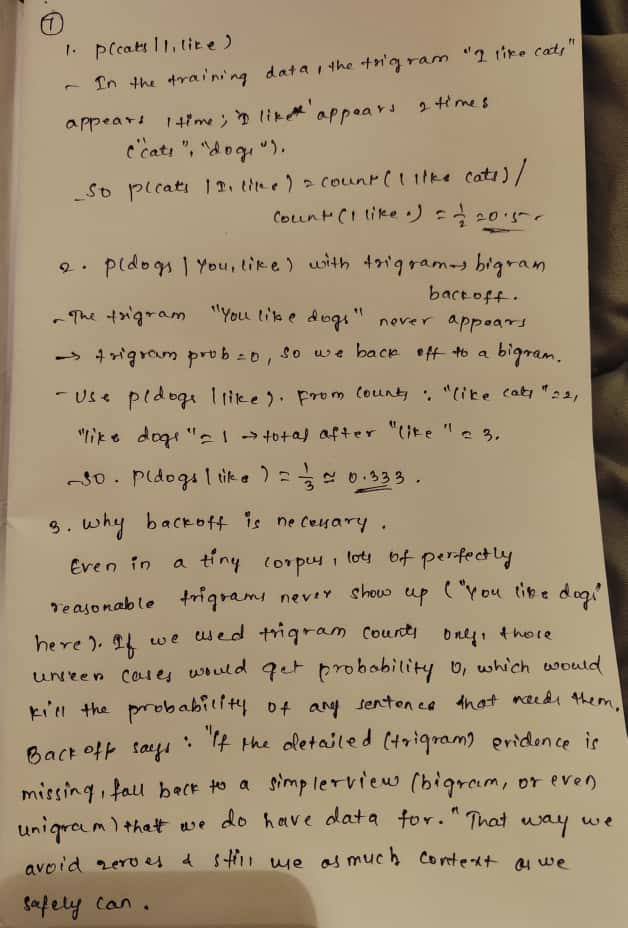 7
1. p(cats | I, like)
- In the training data, the trigram "I like cats"
appears 1 time; "I like" appears 2 times
("cats", "dogs").
- So p(cats | I, like) = count(I like cats) /
count(I like •) = 1/2 = 0.5
2. p(dogs | You, like) with trigram → bigram
backoff.
- The trigram "You like dogs" never appears
→ trigram prob = 0, so we back off to a bigram.
- Use p(dogs | like). From counts: "like cats" = 2,
"like dogs" = 1 → total after "like" = 3.
- So. p(dogs | like) = 1/3 ≈ 0.333.
3. Why backoff is necessary.
Even in a tiny corpus, lots of perfectly
reasonable trigrams never show up ("You like dogs"
here). If we used trigram counts only, those
unseen cases would get probability 0, which would
kill the probability of any sentence that needs them.
Backoff says: "If the detailed (trigram) evidence is
missing, fall back to a simpler view (bigram, or even
unigram) that we do have data for." That way we
avoid zeroes & still use as much context as we
safely can.